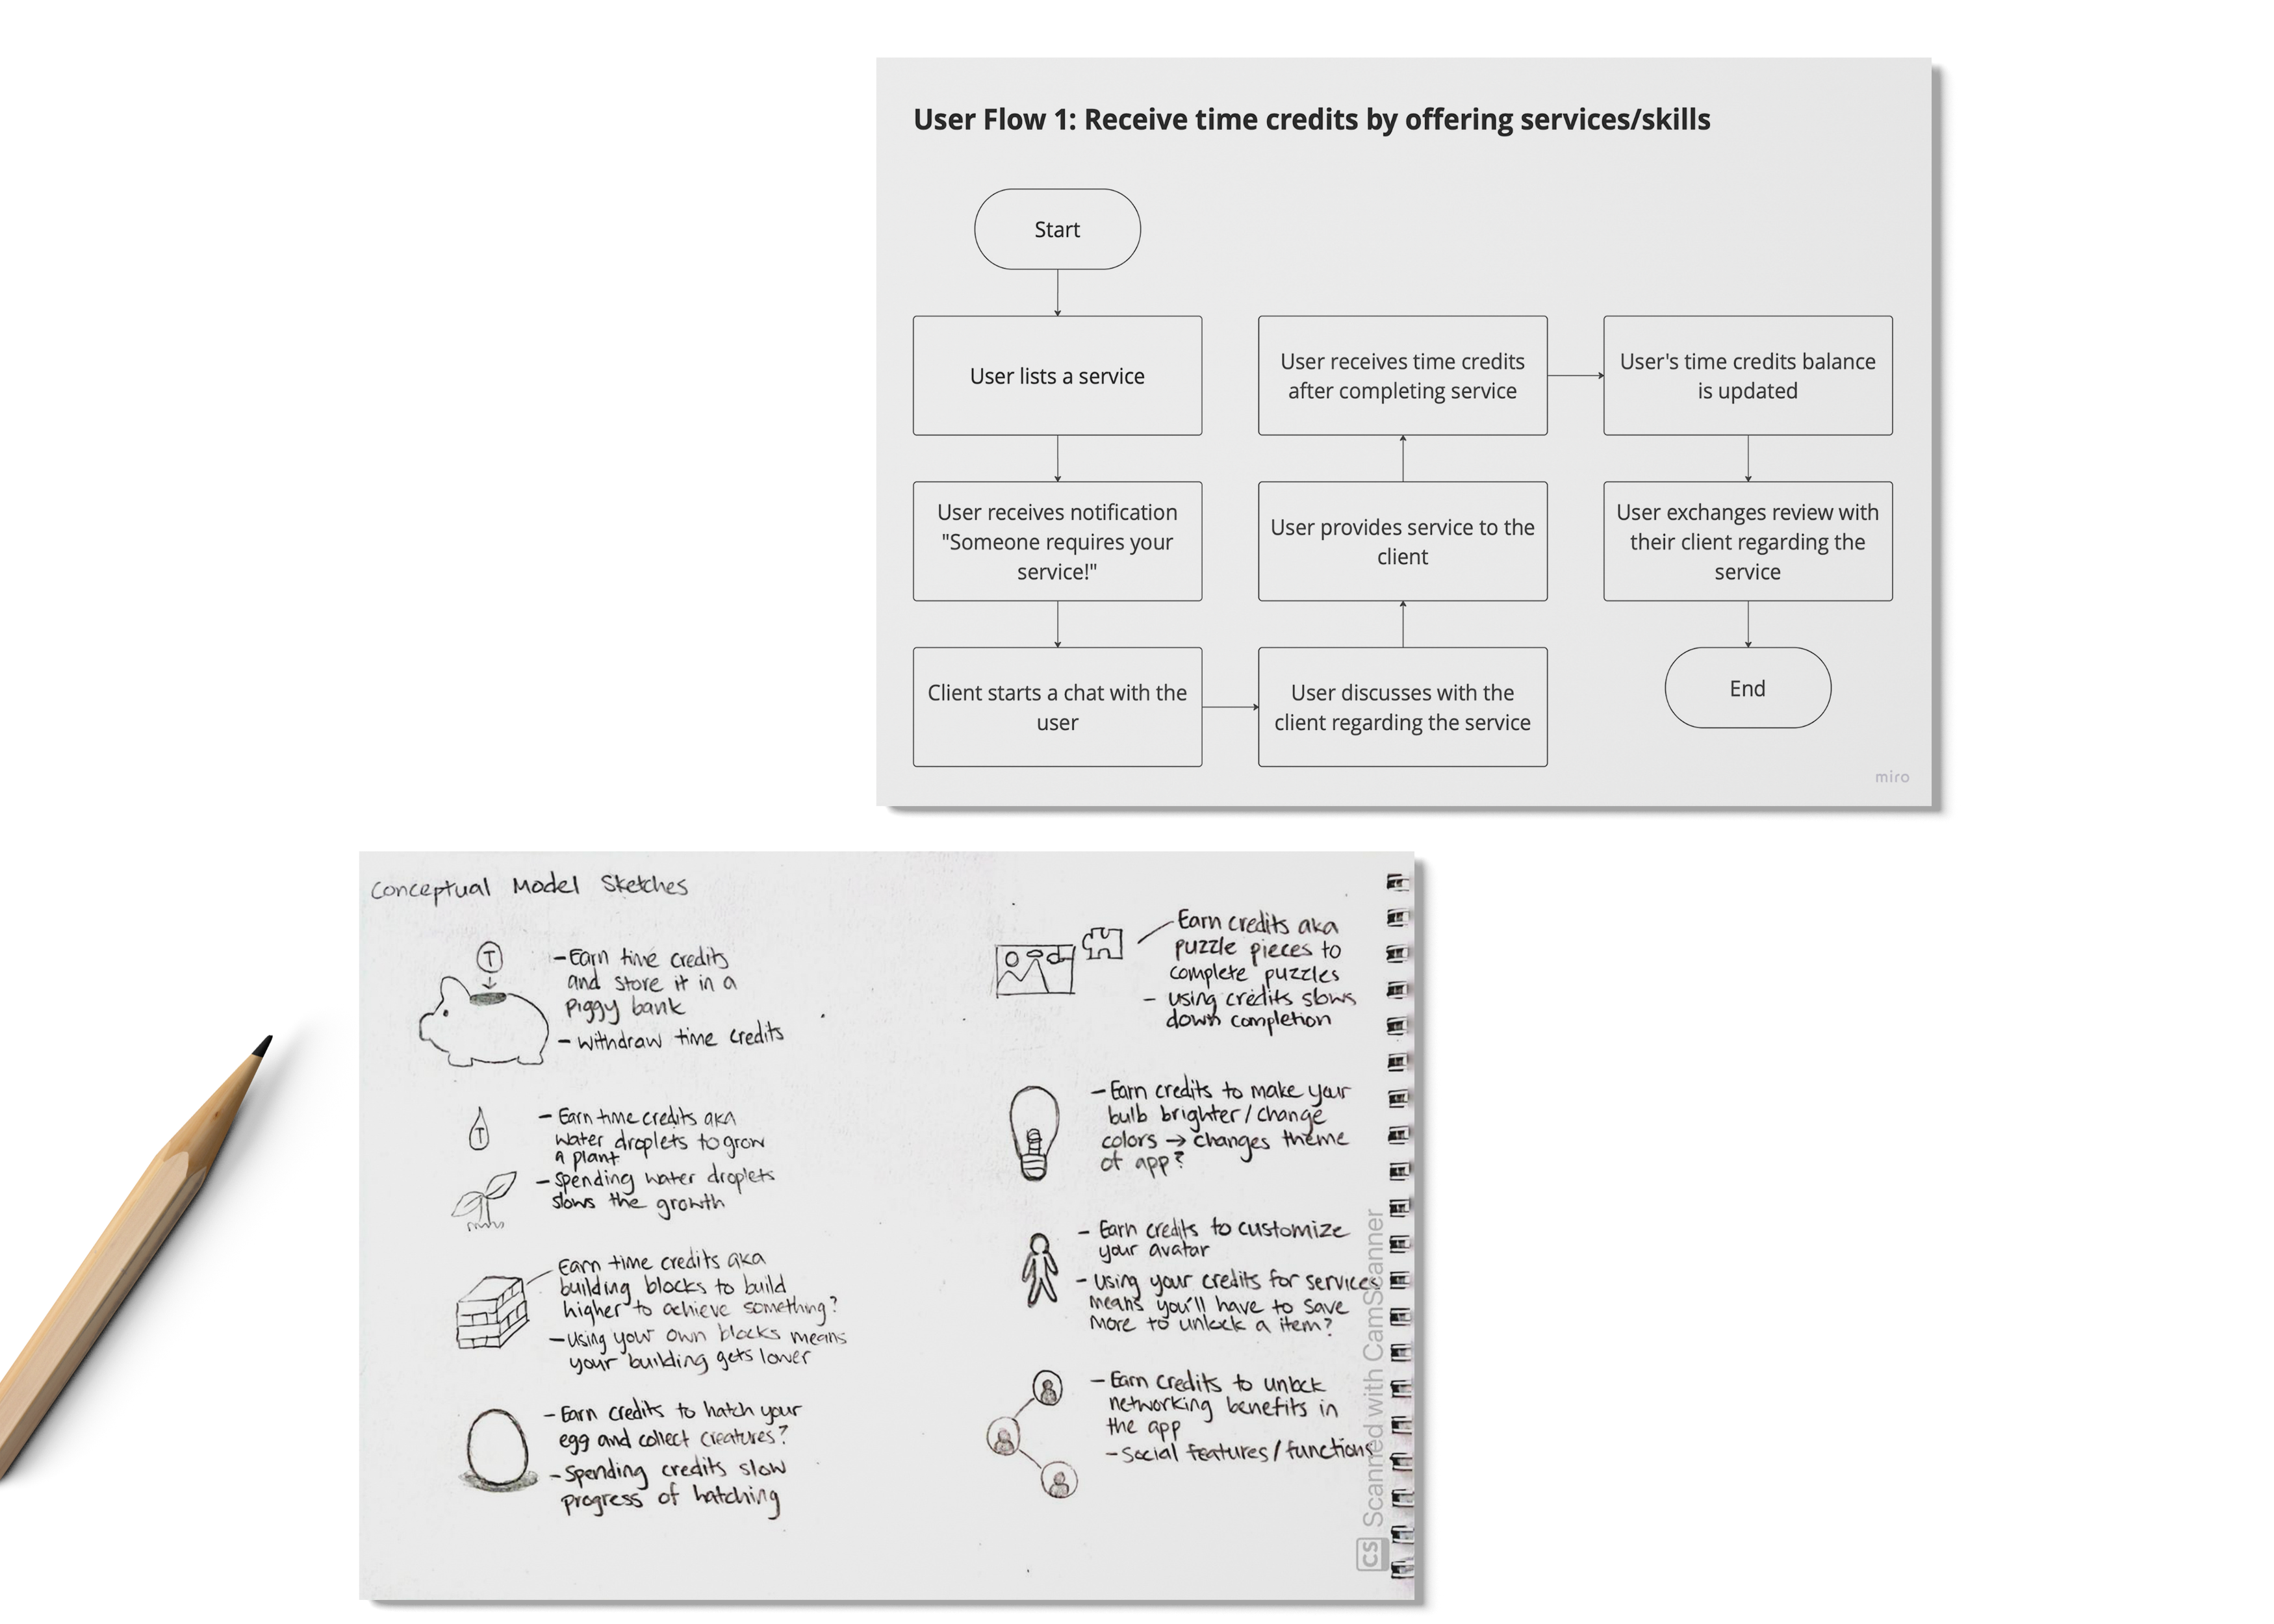 User Flow 1: Receive time credits by offering services/skills
Start
User lists a service
User receives notification
"Someone requires your
service!"
Client starts a chat with the
user
User discusses with the
client regarding the service
User provides service to the
client
User receives time credits
after completing service
User's time credits balance
is updated
User exchanges review with
their client regarding the
service
End
miro
Conceptual Model Sketches
T
- Earn time credits
and store it in a
piggy bank
- withdraw time credits
T
- Earn time credits aka
water droplets to grow
a plant
- Spending water droplets
slows the growth
Earn time credits aka
building blocks to build
higher to achieve something?
- using your own blocks means
your building gets lower
- Earn credits to hatch your
egg and collect creatures?
- Spending credits slow
progress of hatching
Earn credits aka
puzzle pieces to
complete puzzles
- using credits slows
down completion
- Earn credits to make your
bulb brighter/change
colors → changes theme
of app?
- Earn credits to customize
your avatar
- using your credits for services
means you'll have to save
more to unlock a item?
- Earn credits to unlock
networking benefits in
the app
- Social features/functions
CS Scanned with CamScanner